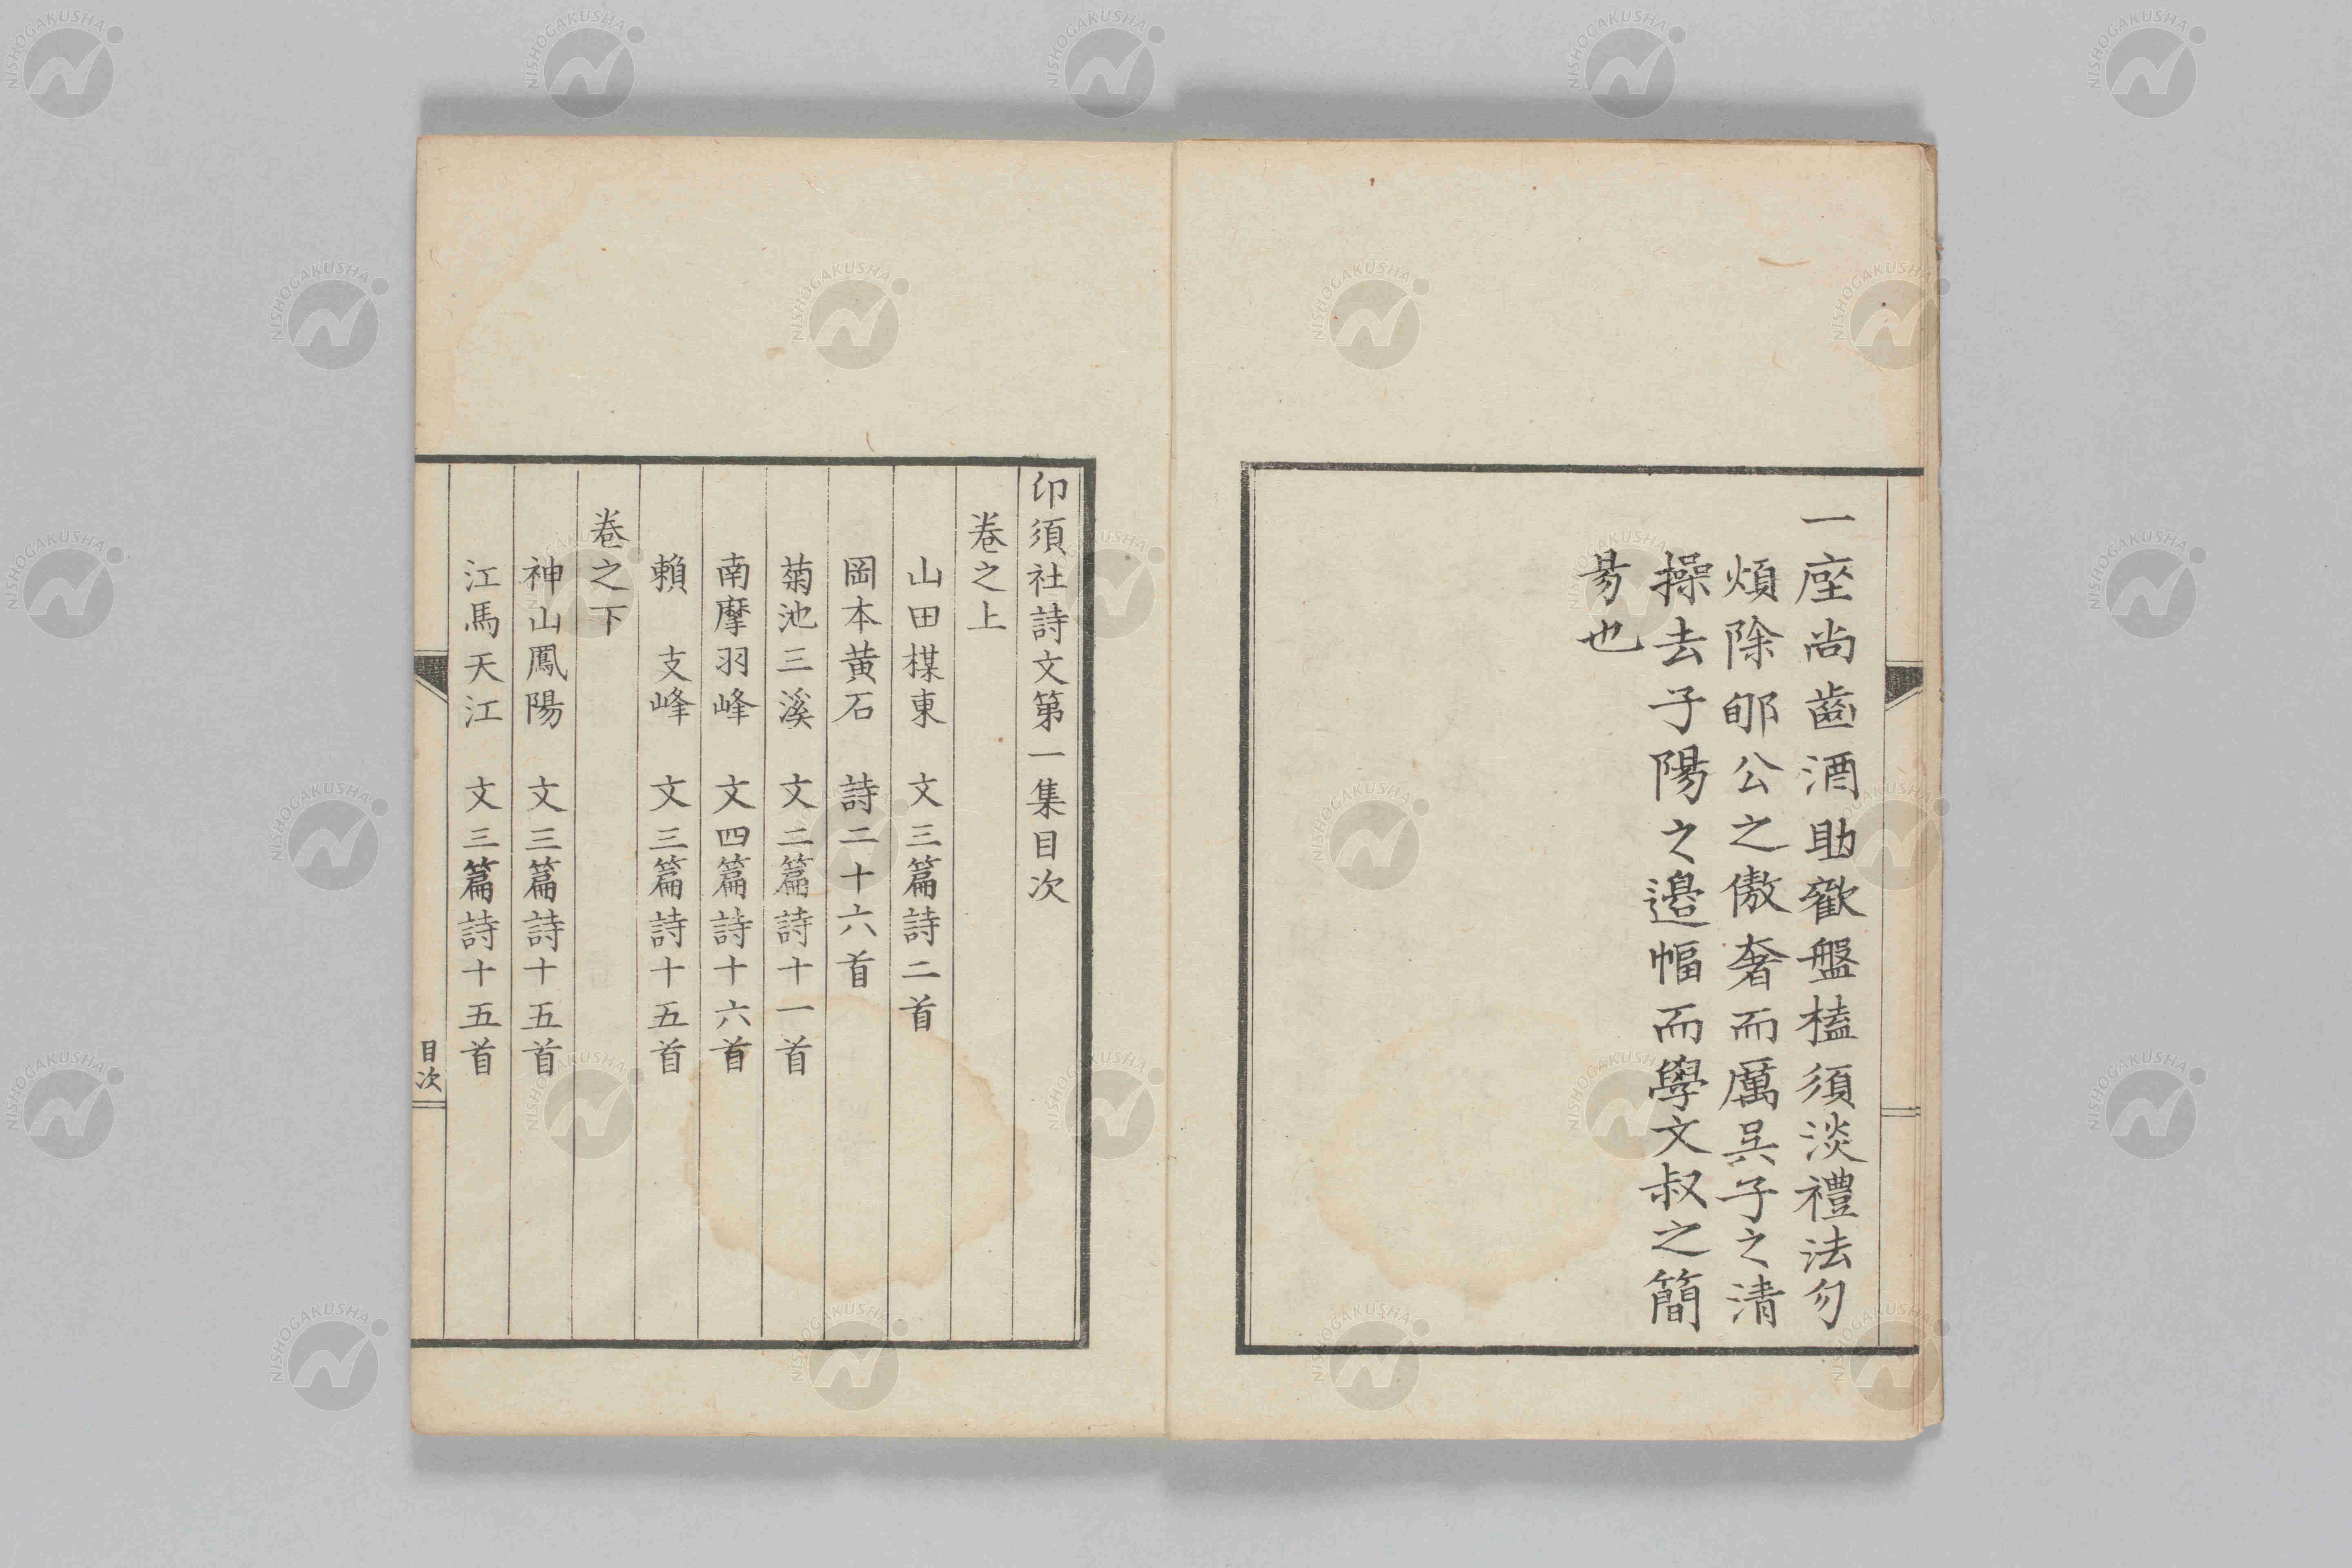 一座尚齒酒助歡盤榼須淡禮法勿
煩除郇公之傲奢而厲吳子之清
操去子陽之邊幅而學文叔之簡
易也
卬須社詩文第一集目次
卷之上
山田楳東 文三篇詩二首
岡本黄石 詩二十六首
菊池三溪 文二篇詩十一首
南摩羽峰 文四篇詩十六首
賴 支峰 文三篇詩十五首
卷之下
神山鳳陽 文三篇詩十五首
江馬天江 文三篇詩十五首
目次
NISHOGAKUSHA